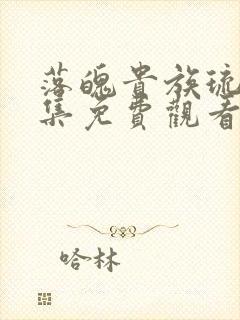 落魄貴族琉
集免費觀看
哈林